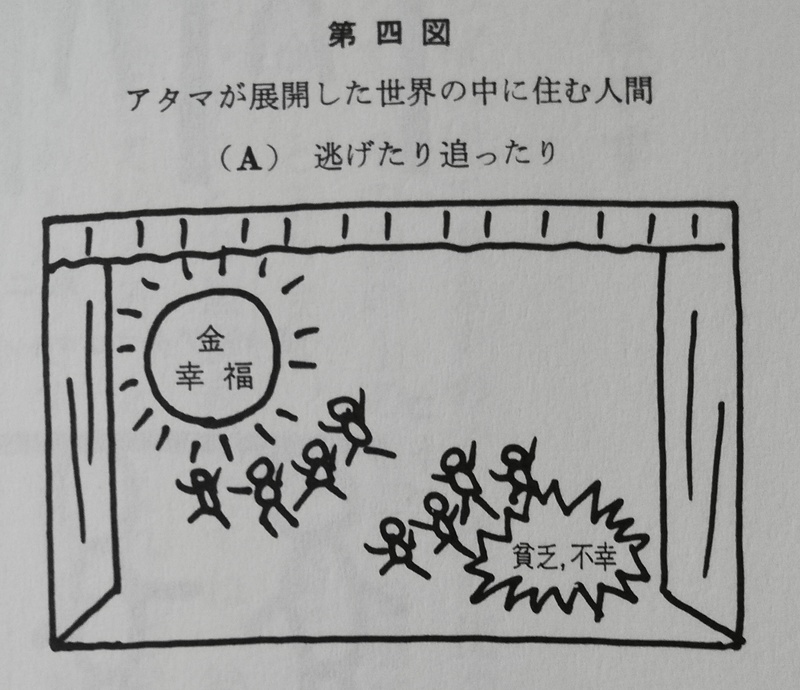 第四図
アタマが展開した世界の中に住む人間
（A） 逃げたり追ったり
金
幸福
貧乏,不幸